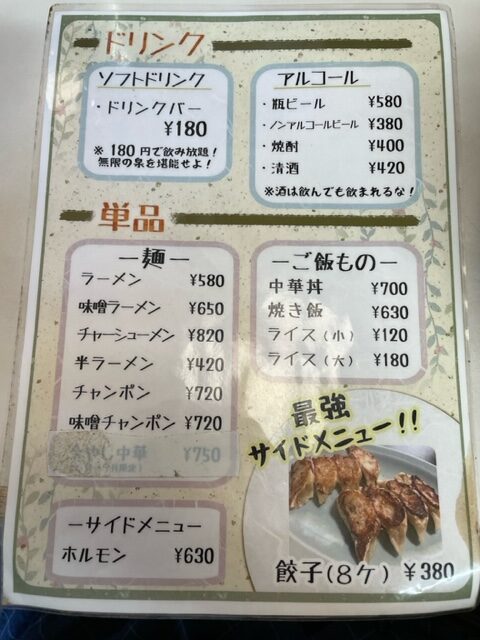 ドリンク
ソフトドリンク
・ドリンクバー
¥180
※180円で飲み放題!
無限の泉を堪能せよ!
アルコール
・瓶ビール ¥580
・ノンアルコールビール ¥380
・焼酎 ¥400
・清酒 ¥420
※酒は飲んでも飲まれるな!
単品
ー麺ー
ラーメン ¥580
味噌ラーメン ¥650
チャーシューメン ¥820
半ラーメン ¥420
チャンポン ¥720
味噌チャンポン ¥720
やし中華 ¥750
ーご飯ものー
中華丼 ¥700
焼き飯 ¥630
ライス(小) ¥120
ライス(大) ¥180
ーサイドメニューー
ホルモン ¥630
最強
サイドメニュー!!
餃子(8ケ) ¥380